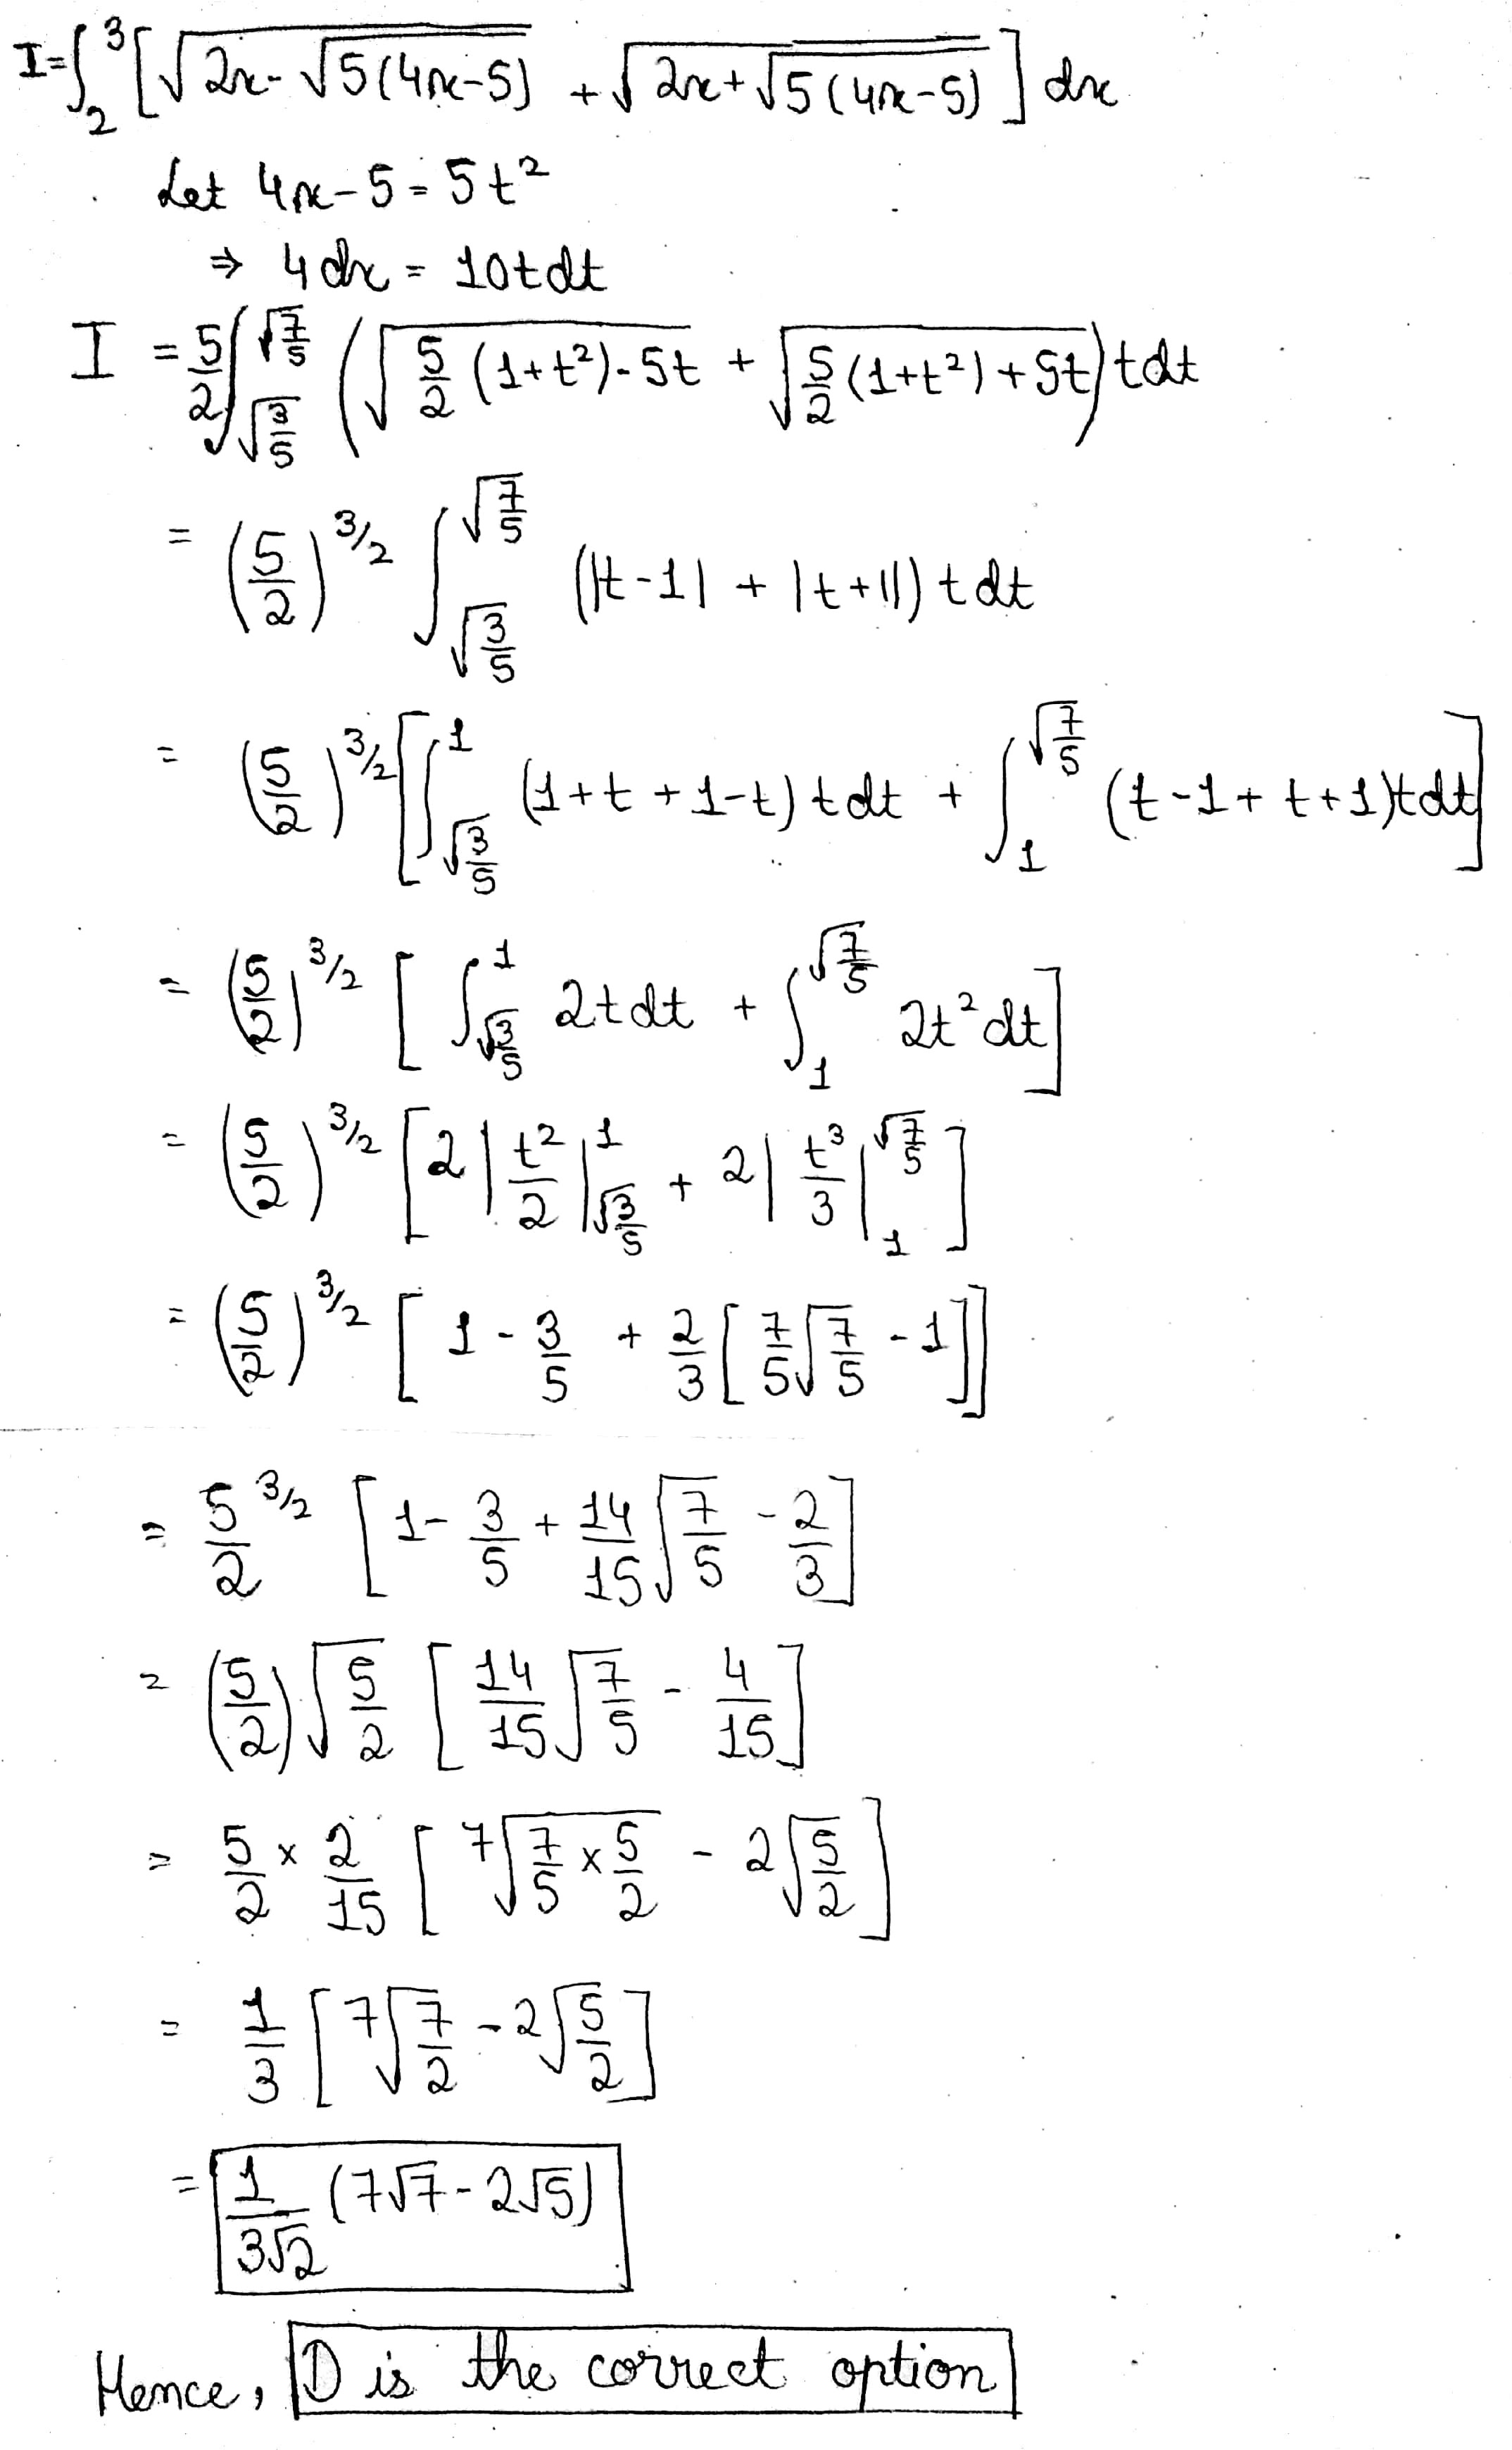 I=∫₂³[√(2x-√(5(4x-5))) + √(2x+√(5(4x-5)))] dx
Let 4x-5 = 5t²
⇒ 4dx = 10tdt
I = 5/2 ∫_{√(3/5)}^{√(7/5)} (√(5/2 (1+t²)-5t) + √(5/2 (1+t²)+5t)) t dt
= (5/2)^{3/2} ∫_{√(3/5)}^{√(7/5)} (|t-1| + |t+1|) t dt
= (5/2)^{3/2} [∫_{√(3/5)}^{1} (1+t+1-t) t dt + ∫_{1}^{√(7/5)} (t-1+t+1) t dt]
= (5/2)^{3/2} [∫_{√(3/5)}^{1} 2t dt + ∫_{1}^{√(7/5)} 2t² dt]
= (5/2)^{3/2} [2|t²/2|_{√(3/5)}^{1} + 2|t³/3|_{1}^{√(7/5)}]
= (5/2)^{3/2} [1 - 3/5 + 2/3 [7/5 √(7/5) - 1]]
= 5/2^{3/2} [1 - 3/5 + 14/15 √(7/5) - 2/3]
= (5/2) √(5/2) [14/15 √(7/5) - 4/15]
= 5/2 × 2/15 [7√(7/5 × 5/2) - 2√(5/2)]
= 1/3 [7√(7/2) - 2√(5/2)]
= 1/(3√2) (7√7 - 2√5)
Hence, D is the correct option